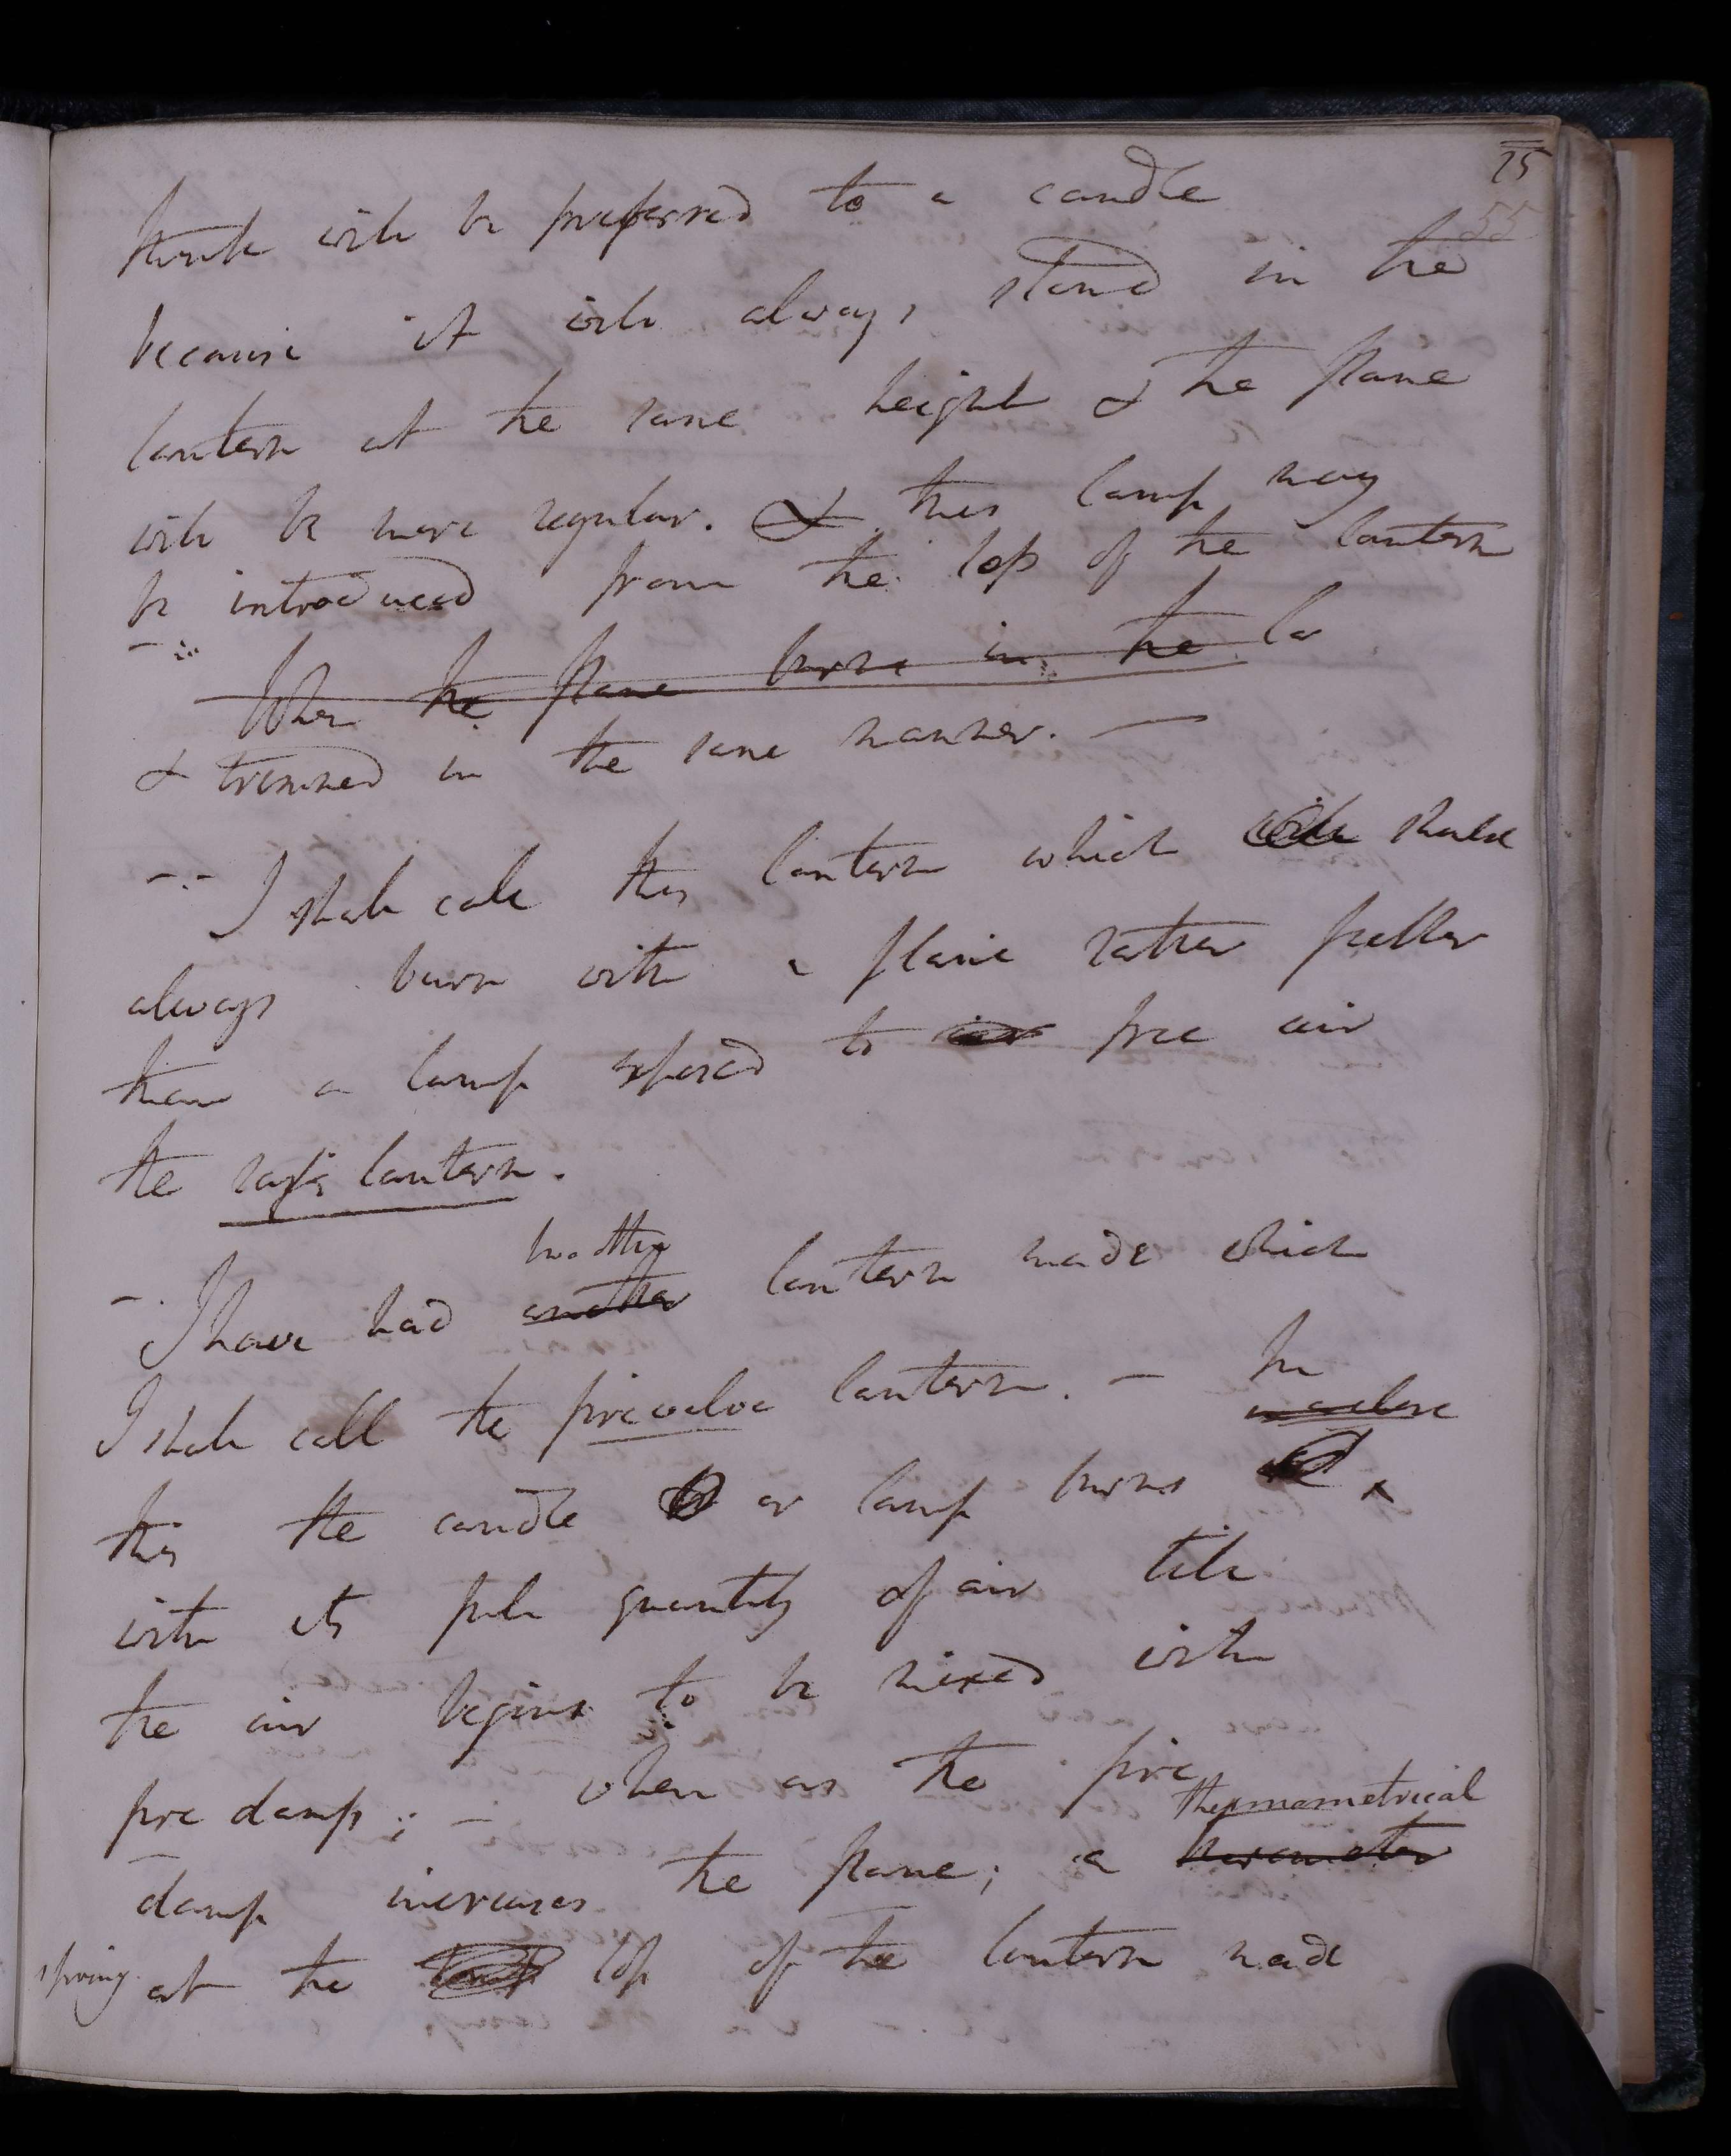 75
55
think will be preferred to a candle
because it will always stand in the
lantern at the same height & the flame
will be more regular. & this lamp may
be introduced from the top of the lantern
When the flame burns in the la
& trimmed in the same manner. —
I shall call this lantern which will should
always burn with a flame rather fuller
than a lamp exposed to air free air
the safe lantern.
brother
- I have had another lantern made which
I shall call the fire valve lantern. — In
this the candle or lamp burns
with its full quantity of air till
the air begins to be mixed with
fire damp; — when as the fire
thermometrical
damp increases the flame; a barometer
spring at the top of the lantern made